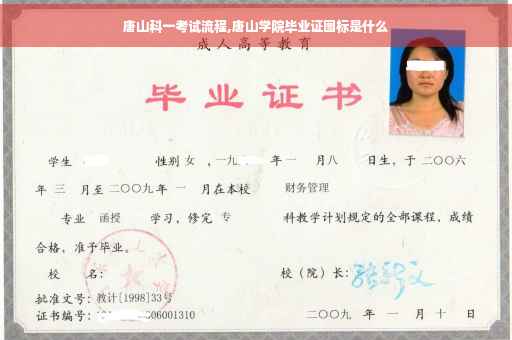 唐山科一考试流程,唐山学院毕业证图标是什么
成人高等教育
毕业证书
学生 性别 女 ,一九 年 一 月八 日生,于 二〇〇六
年 三 月至 二〇〇九年 一 月在本校 财务管理
专业 函授 学习,修完 专 科教学计划规定的全部课程,成绩
合格,准予毕业。
校 名: 校(院)长:
批准文号:教计[1998]33号
证书编号: 06001310 二〇〇九 年 一 月 十 日